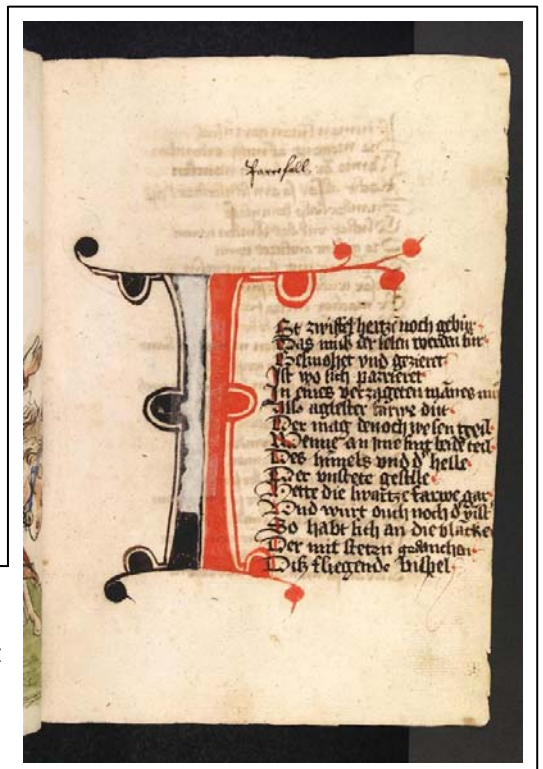 I
St zwiffel hertze noch gebur
Das muß der selen werden sur
Gesmohet vnd gezieret
Ist wo sich parrieret
In eines verzageten mānes mu
Als aglester farwe dut
Der mag denoch wesen geil
Wenne an ime sint beide teil
Des himels vnd d' helle
Der vnstete geselle
Hette die swartze farwe gar
Vnd wurt ouch noch d'
So habt sich an die blancke
Der mit steten gedancken
Diß fliegende bispel